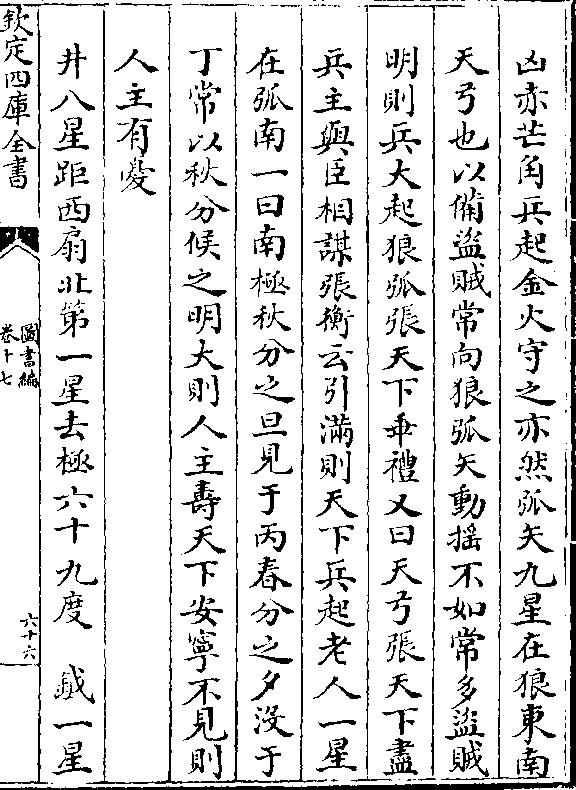 凶赤芒角兵起金火守之亦然弧矢九星在狼東南
天弓也以備盜賊常向狼弧矢動揺不如常多盜賊
明則兵大起狼弧張天下乖禮又曰天弓張天下盡
兵主與臣相謀張衡云引滿則天下兵起老人一星
在弧南一曰南極秋分之旦見于丙春分之夕沒于
丁常以秋分候之明大則人主壽天下安寧不見則
人主有憂
井八星距西扇北第一星去極六十九度　鉞一星
欽定四庫全書
圖書編
卷十七
六十六